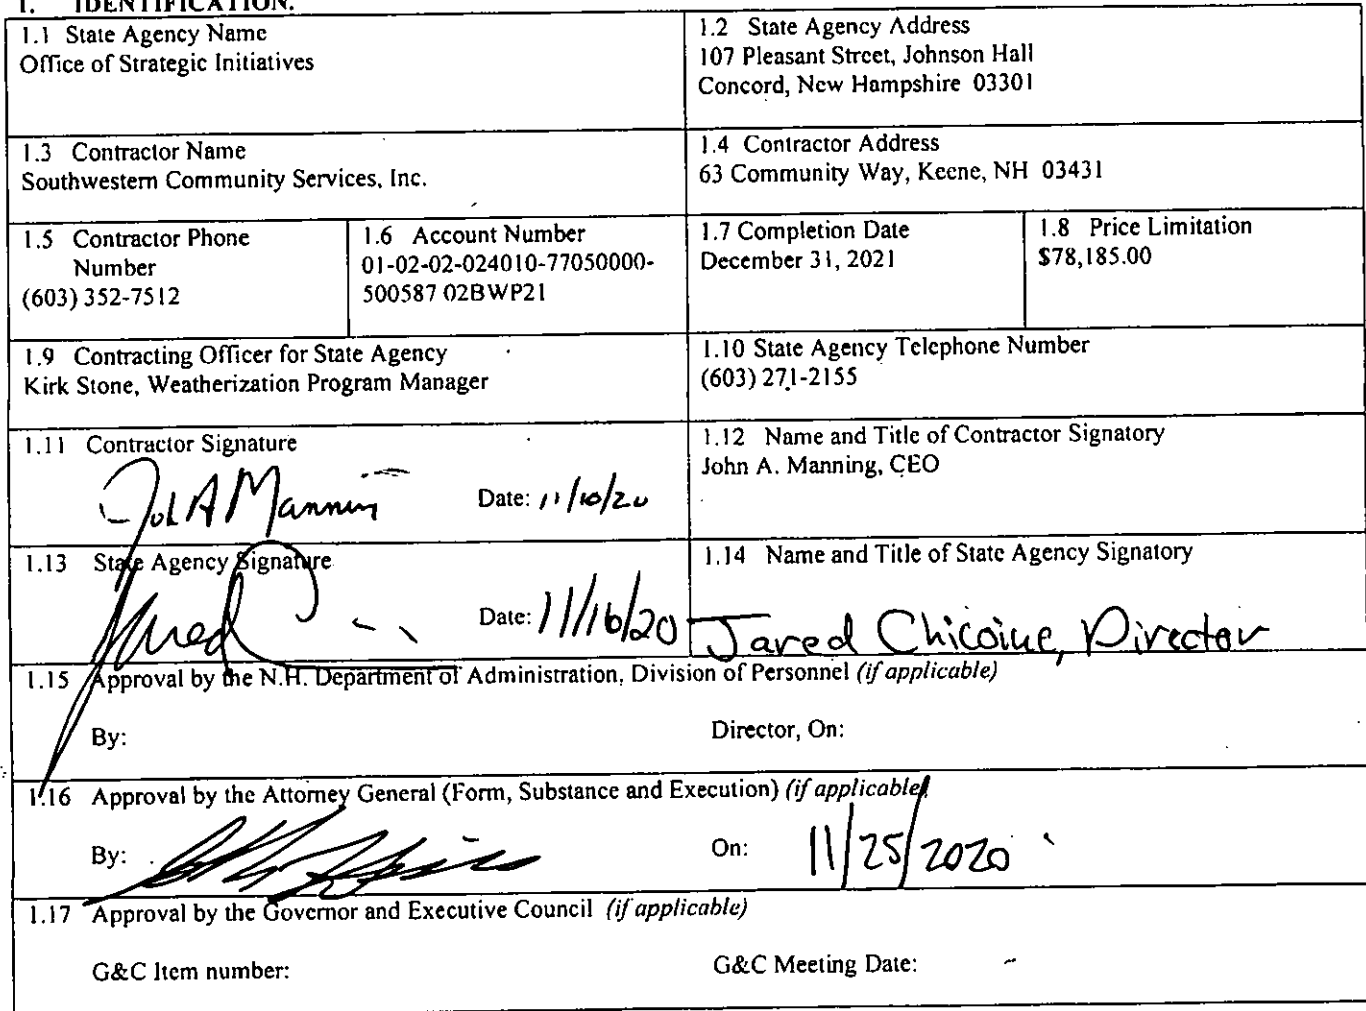 1. IDENTIFICATION.
1.1 State Agency Name
Office of Strategic Initiatives
1.2 State Agency Address
107 Pleasant Street, Johnson Hall
Concord, New Hampshire 03301
1.3 Contractor Name
Southwestern Community Services, Inc.
1.4 Contractor Address
63 Community Way, Keene, NH 03431
1.5 Contractor Phone
Number
(603) 352-7512
1.6 Account Number
01-02-02-024010-77050000-
500587 02BWP21
1.7 Completion Date
December 31, 2021
1.8 Price Limitation
$78,185.00
1.9 Contracting Officer for State Agency
Kirk Stone, Weatherization Program Manager
1.10 State Agency Telephone Number
(603) 271-2155
1.11 Contractor Signature
John A Manning Date: 11/10/20
1.12 Name and Title of Contractor Signatory
John A. Manning, CEO
1.13 State Agency Signature
Jared Date: 11/16/20
1.14 Name and Title of State Agency Signatory
Jared Chicoine, Director
1.15 Approval by the N.H. Department of Administration, Division of Personnel (if applicable)
By: Director, On:
1.16 Approval by the Attorney General (Form, Substance and Execution) (if applicable)
By: On: 11/25/2020
1.17 Approval by the Governor and Executive Council (if applicable)
G&C Item number: G&C Meeting Date: